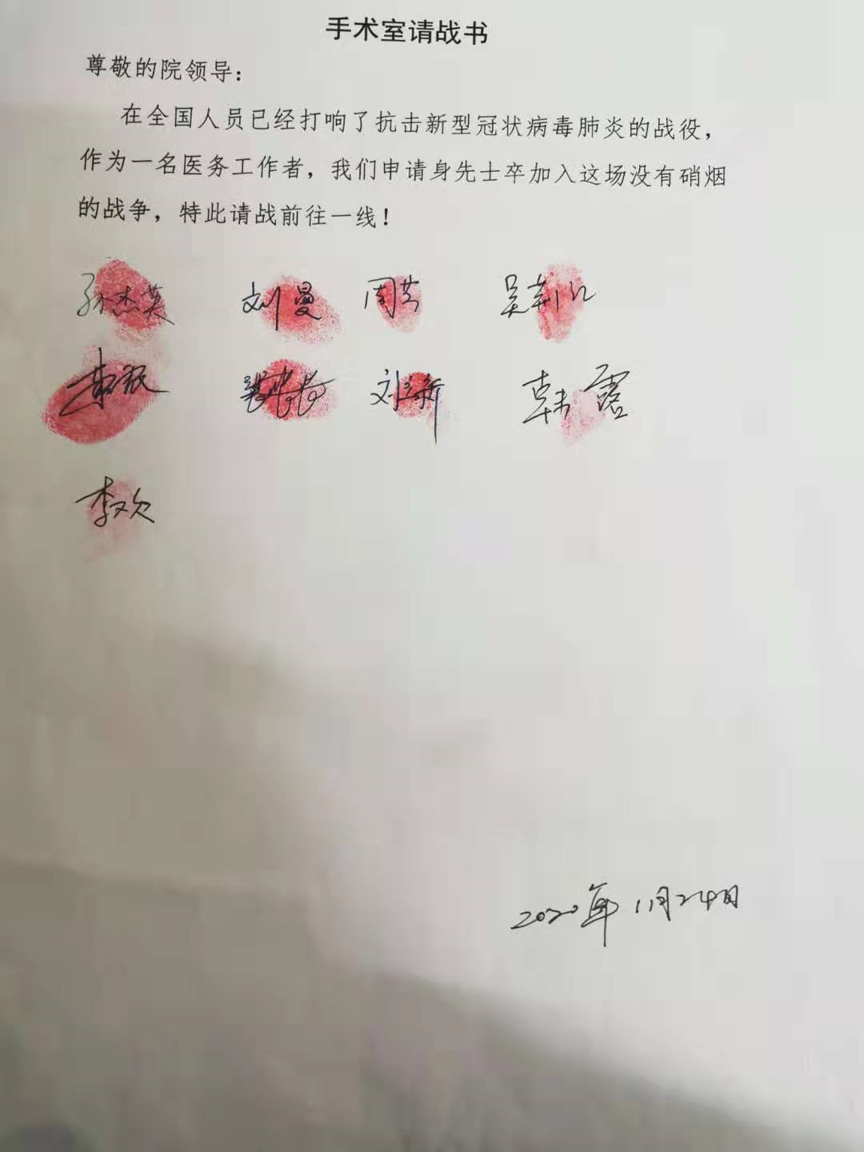 手术室请战书
尊敬的院领导：
在全国人员已经打响了抗击新型冠状病毒肺炎的战役，
作为一名医务工作者，我们申请身先士卒加入这场没有硝烟
的战争，特此请战前往一线！
孙杰英 刘曼 周芸 吴莉江
刘新 韩露
李欢
2020年1月24日